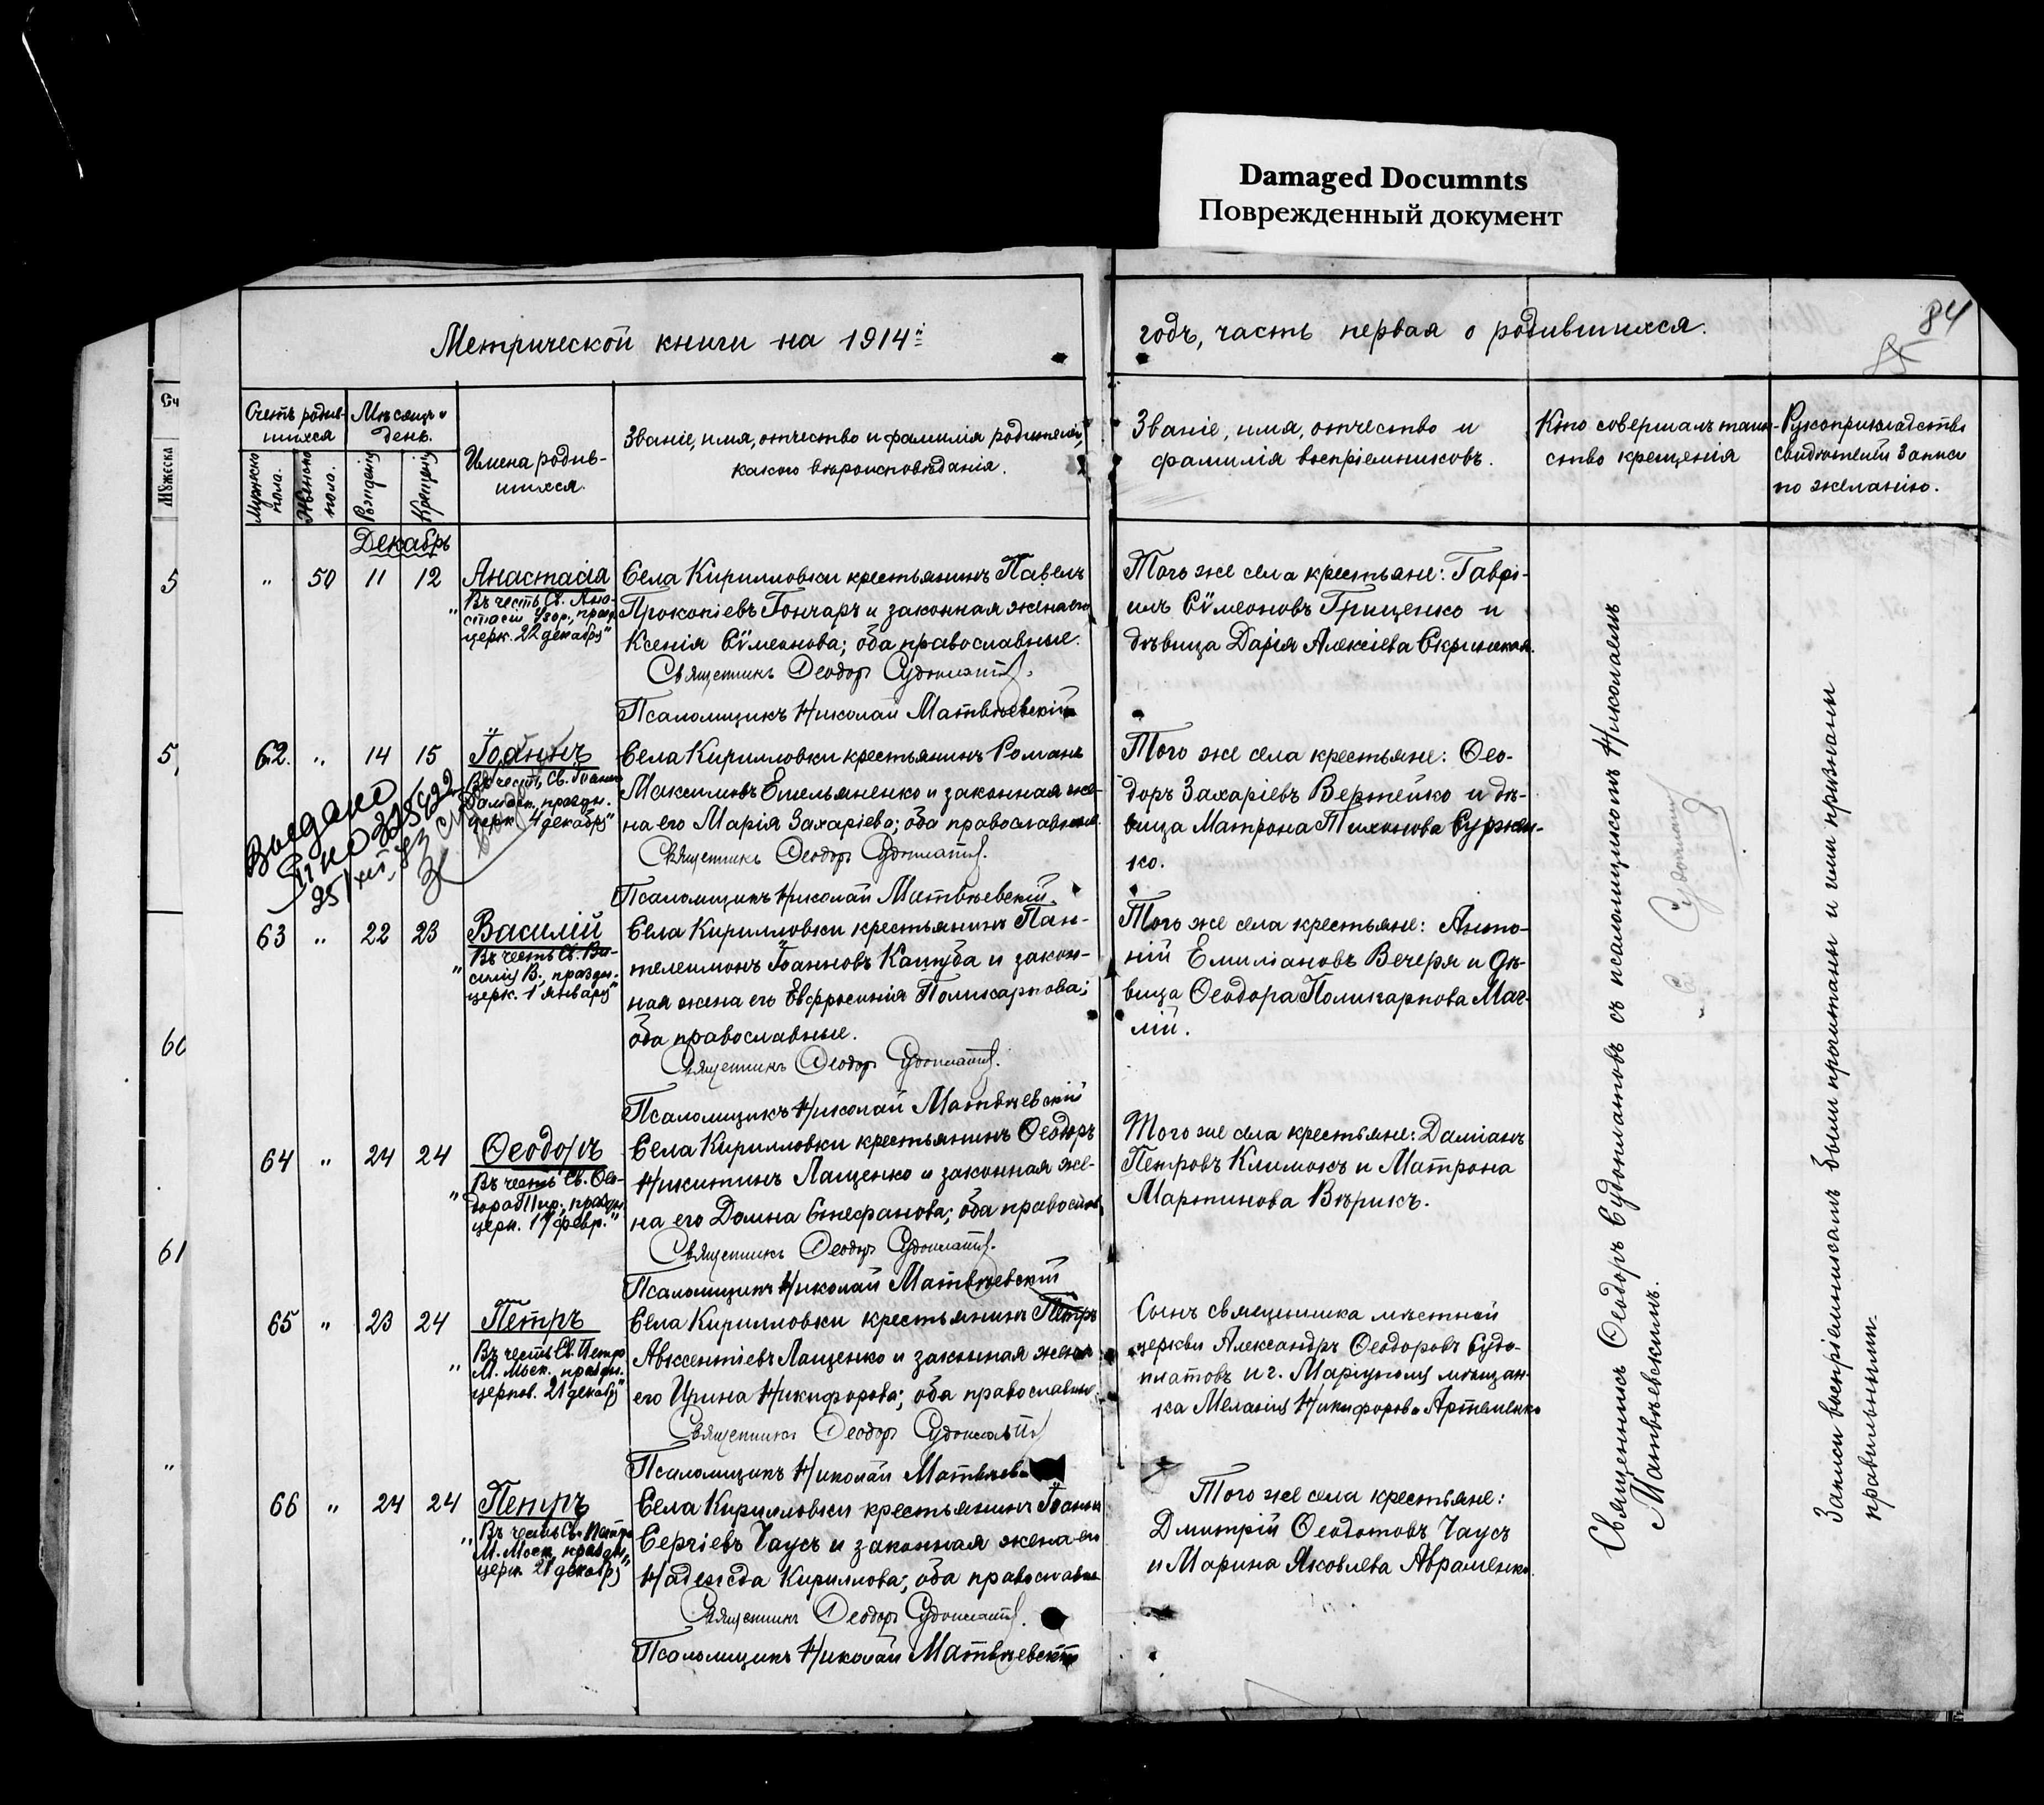 Damaged Documnts
Поврежденный документ
84
Метрической книги на 1914й
годъ, часть первая о родившихся.
Счетъ родив-
шихся
Мужеска
пола.
Женска
пола.
Мѣсяцъ и
день.
Рожденія
Крещенія
Имена родив-
шихся.
Званіе, имя, отчество и фамилія родителей,
какого вѣроисповѣданія.
Званіе, имя, отчество и
фамилія воспріемниковъ.
Кто совершалъ таин-
ство крещенія
Рукоприкладство
свидѣтелей записи
по желанію.
Сч
Мужеска
5
5
60
61
"
Декабрь
" 50 11 12
Анастасія
"Въ честь Св. Ана-
стасіи Узор., празд.
церк. 22 декабря"
Села Кирилловки крестьянинъ Павелъ
Прокопіевъ Гончаръ и законная жена его
Ксенія Сѵмеонова; оба православные.
Священникъ Ѳеодоръ Судоплатовъ.
Псаломщикъ Николай Матвѣевскій
Того же села крестьяне: Гаврі-
илъ Сѵмеоновъ Гриценко и
дѣвица Дарія Алексіева
62. " 14 15
Іоаннъ
Въ честь Св. Іоанна
Дамаск., праздн.
церк. 4 декабря"
Выдано
25/XII
Села Кирилловки крестьянинъ Романъ
Максимовъ Емельяненко и законная же-
на его Марія Захаріева; оба православные.
Священникъ Ѳеодоръ Судоплатовъ.
Псаломщикъ Николай Матвѣевскій.
Того же села крестьяне: Ѳео-
доръ Захаріевъ Вертейко и дѣ-
вица Матрона Тихонова Сужен-
ко.
63 " 22 23
Василій
"Въ честь Св. Ва-
силія В., праздн.
церк. 1 января"
Села Кирилловки крестьянинъ Пан-
телеимонъ Іоанновъ Кацуба и закон-
ная жена его Евфросинія Поликарпова;
оба православные.
Священникъ Ѳеодоръ Судоплатовъ.
Псаломщикъ Николай Матвѣевскій
Того же села крестьяне: Анто-
ній Емиліановъ Вечеря и дѣ-
вица Ѳеодора Поликарпова Маг-
лій.
64 " 24 24
Ѳеодоръ
"Въ честь Св. Ѳео-
дора Тир., праздн.
церк. 17 февр."
Села Кирилловки крестьянинъ Ѳеодоръ
Никитинъ Лащенко и законная же-
на его Домна Стефанова; оба православн.
Священникъ Ѳеодоръ Судоплатовъ.
Псаломщикъ Николай Матвѣевскій
Того же села крестьяне: Даміанъ
Петровъ Климокъ и Матрона
Мартинова Вѣрикъ.
65 " 23 24
Петръ
"Въ честь Св. Петра
М. Моск., праздн.
церков. 21 декабря"
Села Кирилловки крестьянинъ Петръ
Авксентіевъ Лащенко и законная жена
его Ирина Никифорова; оба православные.
Священникъ Ѳеодоръ Судоплатовъ
Псаломщикъ Николай Матвѣев
Сынъ священника мѣстной
церкви Александръ Ѳеодоровъ Судо-
платовъ и г. Маріуполя мѣщан-
ка Меланія Никифорова Артеменко
66 " 24 24
Петръ
"Въ честь Св. Петра
М. Моск., праздн.
церк. 21 декабря"
Села Кирилловки крестьянинъ Іоаннъ
Сергіевъ Чаусъ и законная жена его
Надежда Кириллова; оба православные
Священникъ Ѳеодоръ Судоплатовъ.
Псаломщикъ Николай Матвѣевскій
Того же села крестьяне:
Дмитрій Ѳеодотовъ Чаусъ
и Марина Яковлева Авраменко.
Священникъ Ѳеодоръ Судоплатовъ съ псаломщикомъ Николаемъ
Матвѣевскимъ.
Записи воспріемникамъ были прочитаны и ими признаны
правильными.